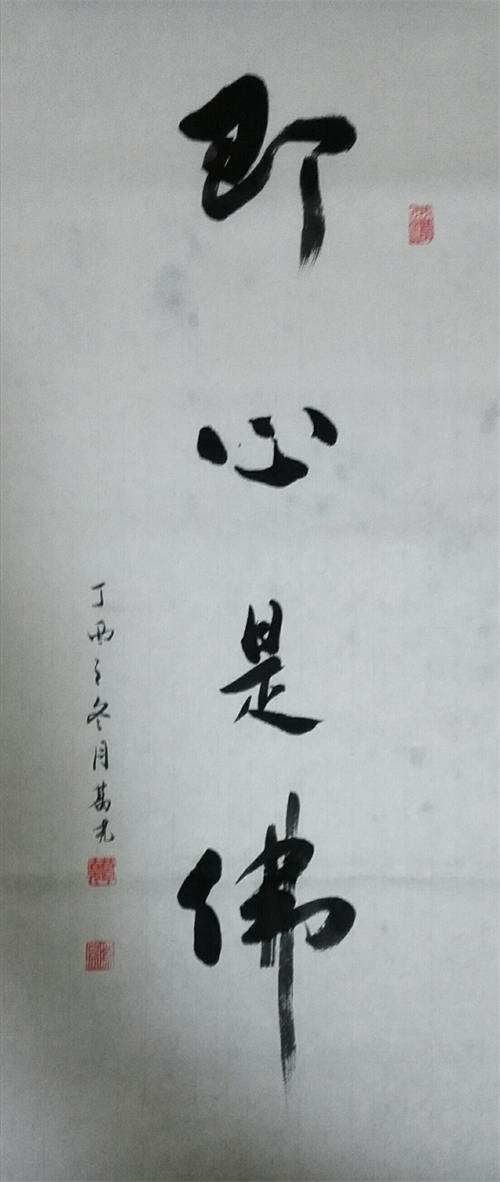 即心是佛
丁酉之冬月萬光